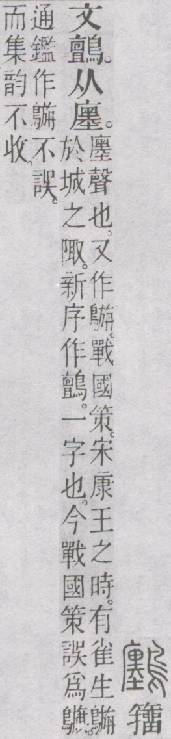 籒
文鸇。从廛。
廛聲也。又作。戰國策。宋康王之時。有雀生
於城之陬。新序作鸇。一字也。今戰國策誤爲
通鑑作不誤。
而集韵不收。